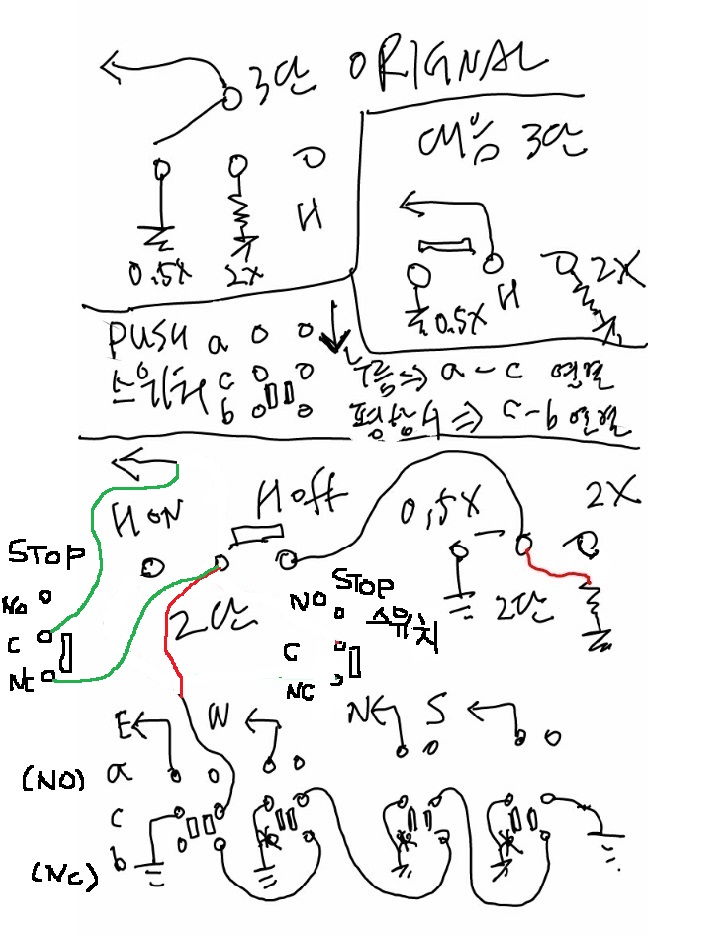 3단 ORIGNAL
H
0.5X 2X
3단
0.5X H 2X
PUSH a
스위치 c
b
누름 ⇒ a - c 연결
평상시 ⇒ c - b 연결
H ON H off 0,5X 2X
STOP
No
C
NC
2단
STOP
NO 스위치
C
NC
2단
E W N S
(NO) a
c
(NC) b